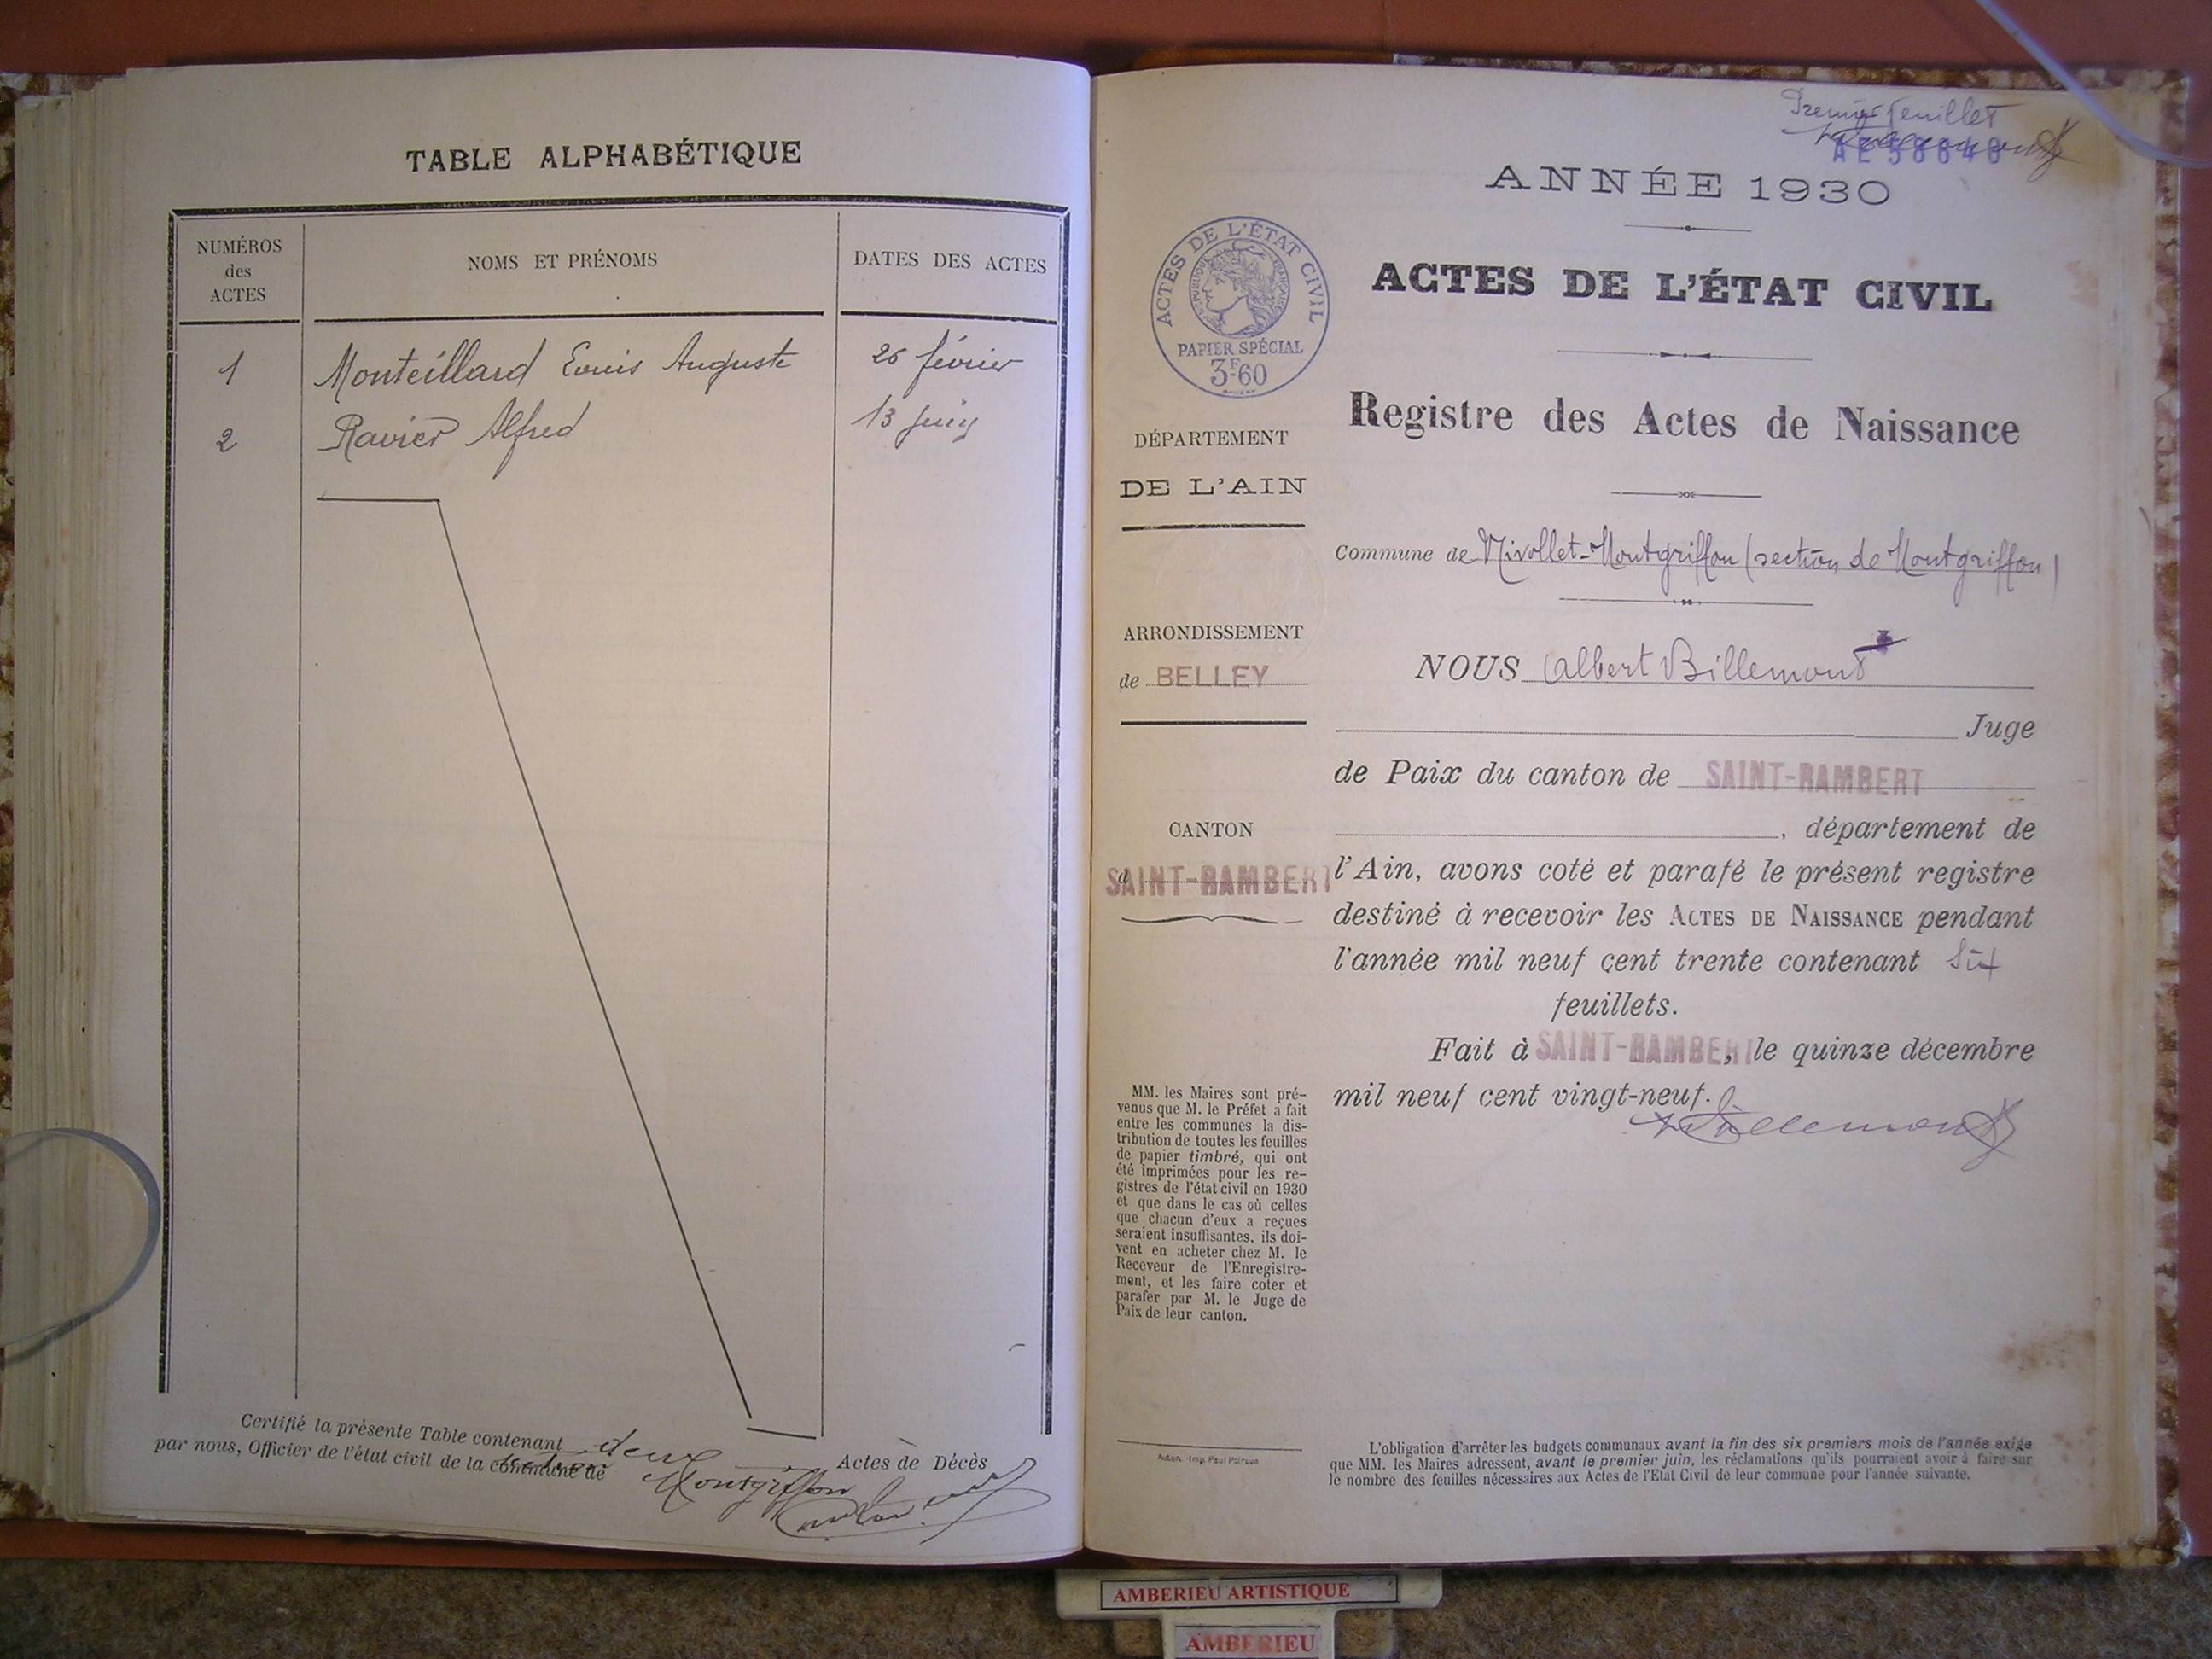 TABLE ALPHABÉTIQUE
NUMÉROS
des
ACTES
NOMS ET PRÉNOMS
DATES DES ACTES
1 Monteillard Louis Auguste 26 février
2 Ravier Alfred 13 juin
Certifié la présente Table contenant deux Actes de Décès
par nous, Officier de l'état civil de la commune de Montgriffon
Premier feuillet
AE58848
ANNÉE 1930
ACTES DE L'ÉTAT CIVIL
RÉPUBLIQUE FRANÇAISE
PAPIER SPÉCIAL
3F60
ACTES DE L'ÉTAT CIVIL
Registre des Actes de Naissance
DÉPARTEMENT
DE L'AIN
Commune de Nivollet-Montgriffon (section de Montgriffon)
ARRONDISSEMENT
de BELLEY
CANTON
d SAINT-RAMBERT
NOUS Albert Billemond
Juge
de Paix du canton de SAINT-RAMBERT
, département de
l'Ain, avons coté et parafé le présent registre
destiné à recevoir les ACTES DE NAISSANCE pendant
l'année mil neuf cent trente contenant Six
feuillets.
Fait à SAINT-RAMBERT, le quinze décembre
mil neuf cent vingt-neuf.
Billemond
MM. les Maires sont pré-
venus que M. le Préfet a fait
entre les communes la dis-
tribution de toutes les feuilles
de papier timbré, qui ont
été imprimées pour les re-
gistres de l'état civil en 1930
et que dans le cas où celles
que chacun d'eux a reçues
seraient insuffisantes, ils doi-
vent en acheter chez M. le
Receveur de l'Enregistre-
ment, et les faire coter et
parafer par M. le Juge de
Paix de leur canton.
Imp. Paul
L'obligation d'arrêter les budgets communaux avant la fin des six premiers mois de l'année exige
que MM. les Maires adressent, avant le premier juin, les réclamations qu'ils pourraient avoir à faire sur
le nombre des feuilles nécessaires aux Actes de l'Etat Civil de leur commune pour l'année suivante.
AMBERIEU ARTISTIQUE
AMBERIEU